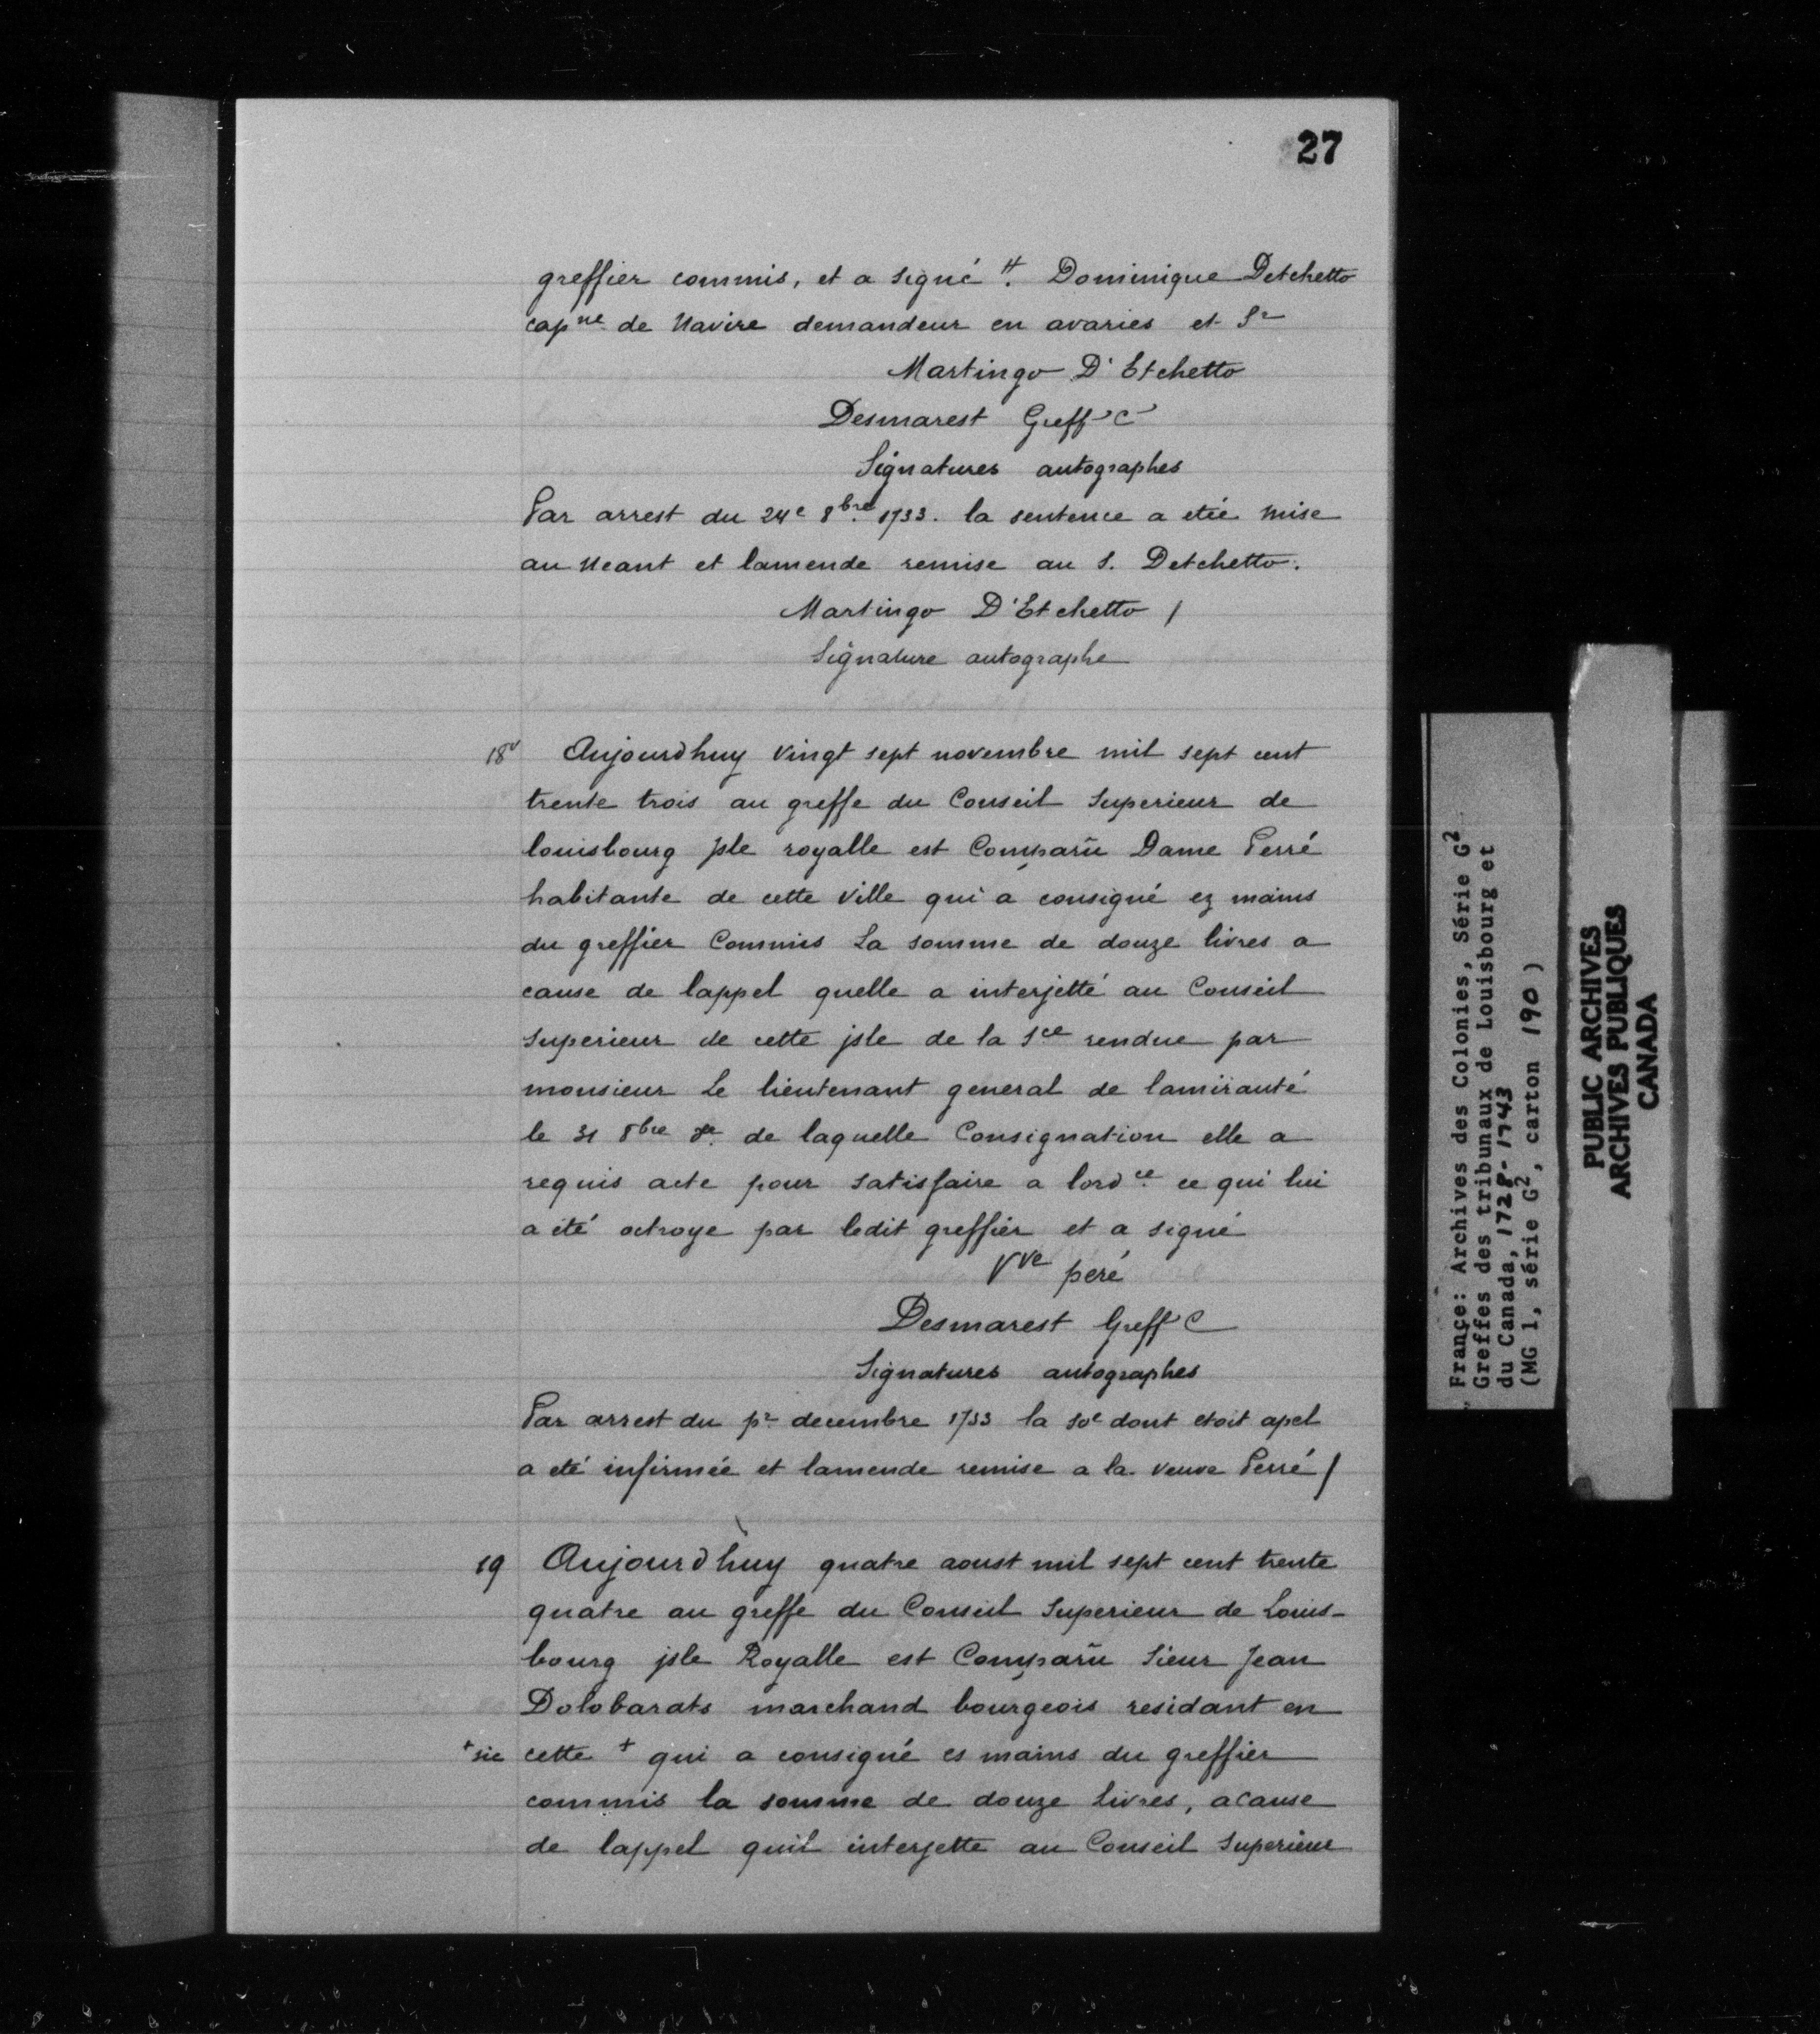 27
greffier commis, et a signé # . Dominique Detchetto
capne de Navire demandeur en avaries et Sr
Martingo D'Etchetto
Desmarest Greff C
Signatures autographes
Par arrest du 24e 8bre 1733. la sentence a etée mise
au Neant et lamende remise au S. Detchetto.
Martingo D'Etchetto /
Signature autographe
18v Aujourdhuy vingt sept novembre mil sept cent
trente trois au greffe du Conseil Superieur de
louisbourg jsle royalle est Comparü Dame Perré
habitante de cette ville qui a consigné ez mains
du greffier Commis La somme de douze livres a
cause de lappel quelle a interjetté au Conseil
Superieur de cette jsle de la Sce rendue par
monsieur Le lieutenant general de lamirauté
le 31 8bre de laquelle Consignation elle a
requis acte pour satisfaire a lordce ce qui lui
a été octroye par ledit greffier et a signé
Vve peré
Desmarest Greff C
Signatures autographes
Par arrest du pr decembre 1733 la sce dont etoit apel
a eté infirmée et lamende remise a la veuve Perré /
19 Aujourdhuy quatre aoust mil sept cent trente
quatre au greffe du Conseil Superieur de Louis-
bourg jsle Royalle est Comparü Sieur Jean
Dolobarats marchand bourgeois residant en
+ sic cette + qui a consigné es mains du greffier
commis la somme de douze livres, acause
de lappel quil interjette au Conseil Superieur
France: Archives des Colonies, Série G2
Greffes des tribunaux de Louisbourg et
du Canada, 1728-1743
(MG 1, série G2, carton 190)
PUBLIC ARCHIVES
ARCHIVES PUBLIQUES
CANADA